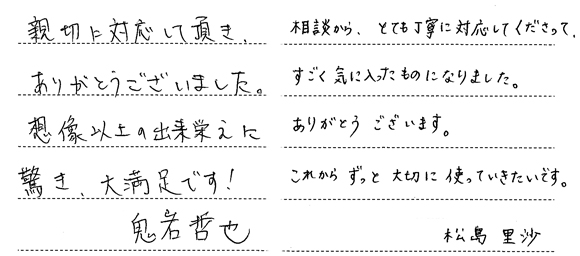 親切に対応して頂き、
ありがとうございました。
想像以上の出来栄えに
驚き、大満足です！
鬼岩哲也
相談から、とても丁寧に対応してくださって、
すごく気に入ったものになりました。
ありがとう ございます。
これから ずっと 大切に 使っていきたいです。
松島 里沙